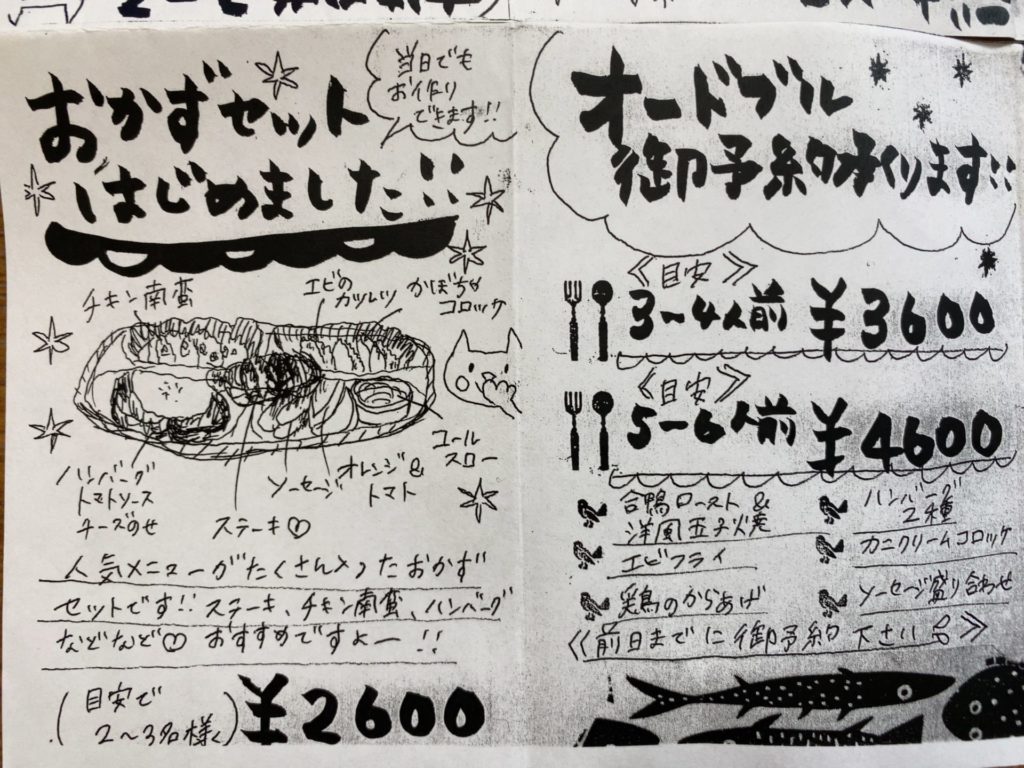 おかずセット
はじめました!!
当日でも
お作り
できます!!
チキン南蛮
エビの
カツレツ
かぼちゃ
コロッケ
ハンバーグ
トマトソース
チーズのせ
ステーキ♡
ソーセージ
オレンジ&
トマト
コール
スロー
人気メニューがたくさん入ったおかず
セットです!! ステーキ、チキン南蛮、ハンバーグ
などなど♡ おすすめですよー!!
(目安で
2〜3名様)
¥2600
オードブル
御予約承ります!!
《目安》
3〜4人前 ¥3600
《目安》
5〜6人前 ¥4600
合鴨ロースト&
洋風玉子焼
エビフライ
若鶏のからあげ
ハンバーグ
2種
カニクリームコロッケ
ソーセージ盛り合わせ
《前日までに御予約下さい》